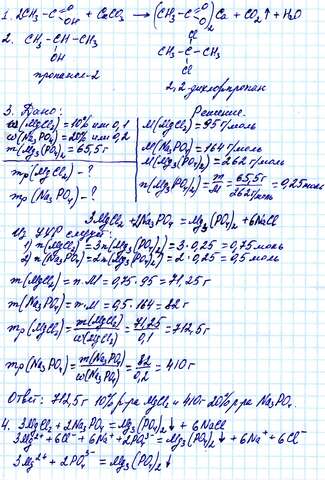 1. 2CH₃-C(=O)OH + CaCO₃ → (CH₃-C(=O)O)₂Ca + CO₂↑ + H₂O
2. CH₃-CH-CH₃
OH
пропанол-2
Cl
CH₃-C-CH₃
Cl
2,2-дихлорпропан
3. Дано:
ω(MgCl₂)=10% или 0,1
ω(Na₃PO₄)=20% или 0,2
m(Mg₃(PO₄)₂)=65,5г
mр(MgCl₂)-?
mр(Na₃PO₄)-?
Решение.
M(MgCl₂)=95г/моль
M(Na₃PO₄)=164г/моль
M(Mg₃(PO₄)₂)=262г/моль
n(Mg₃(PO₄)₂)=m/M=65,5г/262г/моль=0,25моль
3MgCl₂+2Na₃PO₄=Mg₃(PO₄)₂+6NaCl
Из УХР следует:
1) n(MgCl₂)=3n(Mg₃(PO₄)₂)=3·0,25=0,75моль
2) n(Na₃PO₄)=2n(Mg₃(PO₄)₂)=2·0,25=0,5моль
m(MgCl₂)=n·M=0,75·95=71,25г
m(Na₃PO₄)=n·M=0,5·164=82г
mр(MgCl₂)=m(MgCl₂)/ω(MgCl₂)=71,25/0,1=712,5г
mр(Na₃PO₄)=m(Na₃PO₄)/ω(Na₃PO₄)=82/0,2=410г
Ответ: 712,5г 10%р-ра MgCl₂ и 410г 20%р-ра Na₃PO₄.
4. 3MgCl₂+2Na₃PO₄=Mg₃(PO₄)₂↓+6NaCl
3Mg²⁺+6Cl⁻+6Na⁺+2PO₄³⁻=Mg₃(PO₄)₂↓+6Na⁺+6Cl⁻
3Mg²⁺+2PO₄³⁻=Mg₃(PO₄)₂↓